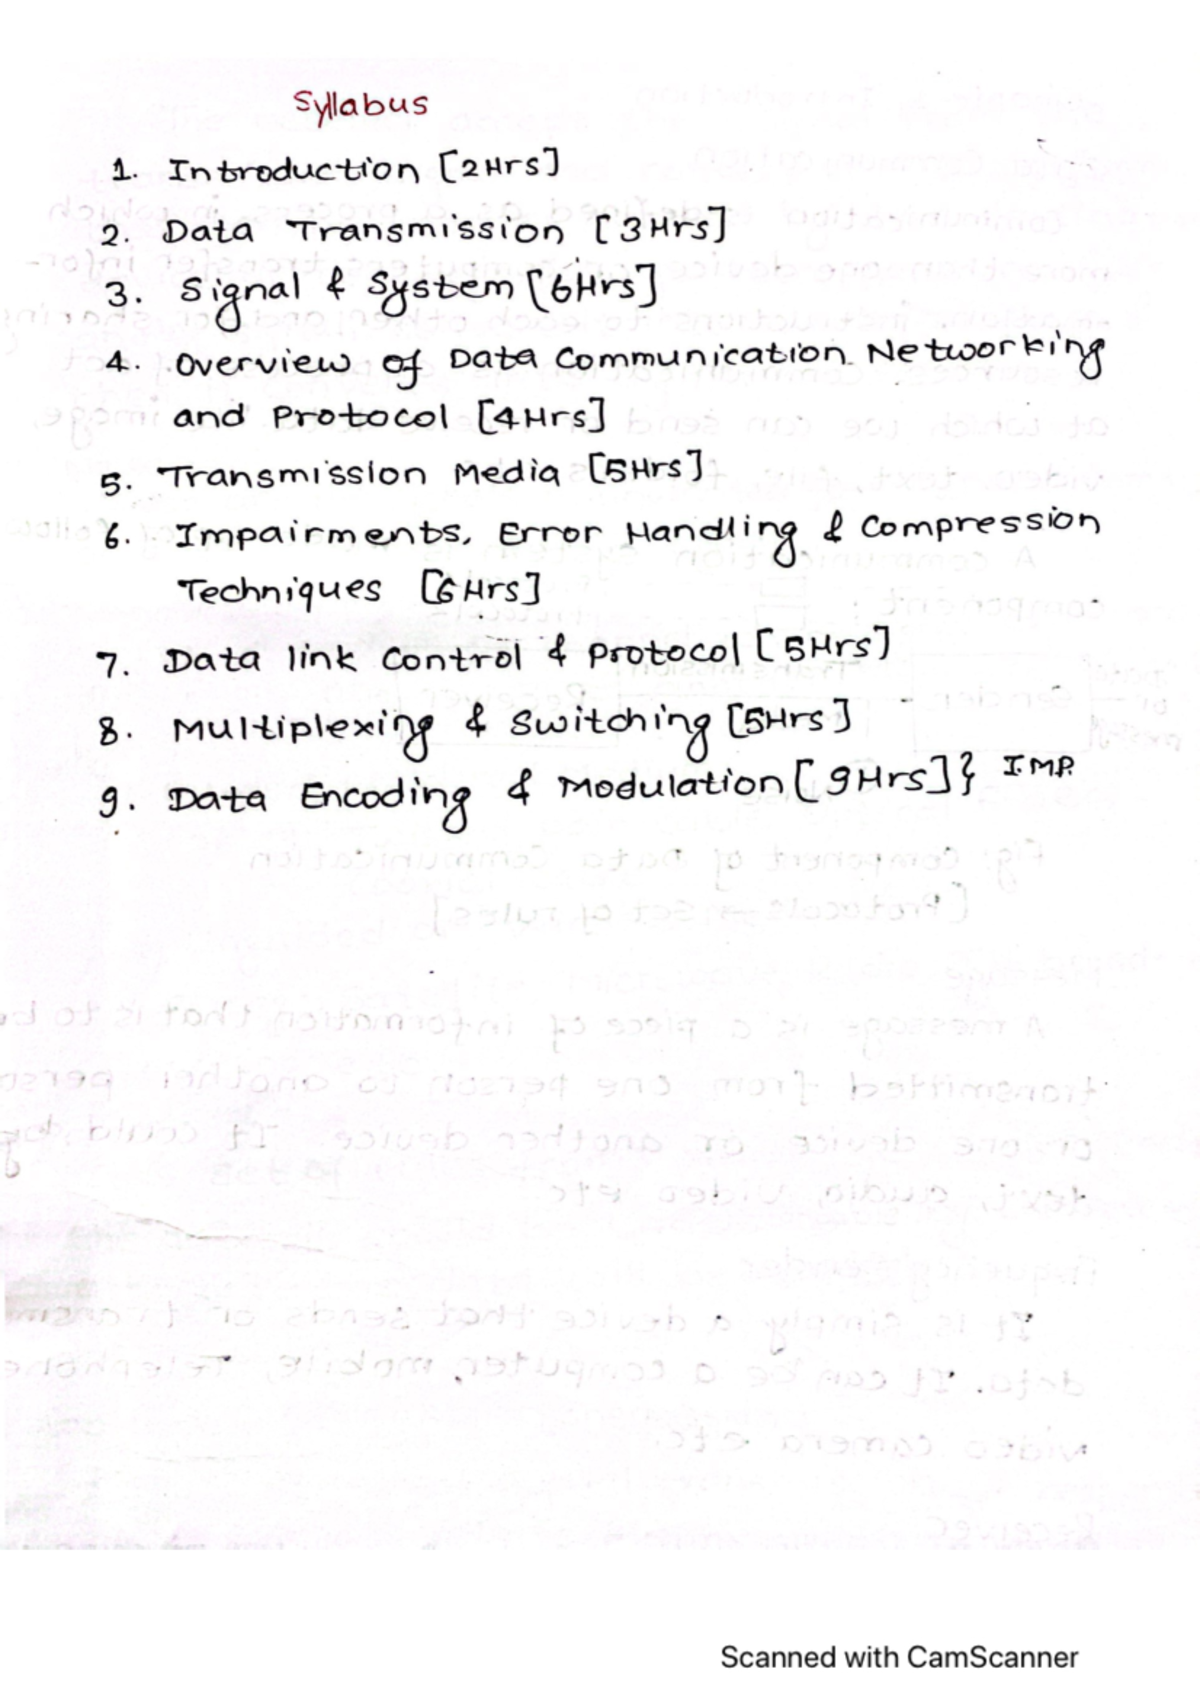 Syllabus
1. Introduction [2Hrs]
2. Data Transmission [3Hrs]
3. Signal & System [6Hrs]
4. Overview of Data Communication Networking
and Protocol [4Hrs]
5. Transmission Media [5Hrs]
6. Impairments, Error Handling & Compression
Techniques [6Hrs]
7. Data link Control & Protocol [5Hrs]
8. Multiplexing & Switching [5Hrs]
9. Data Encoding & Modulation [9Hrs]} IMP.
Scanned with CamScanner